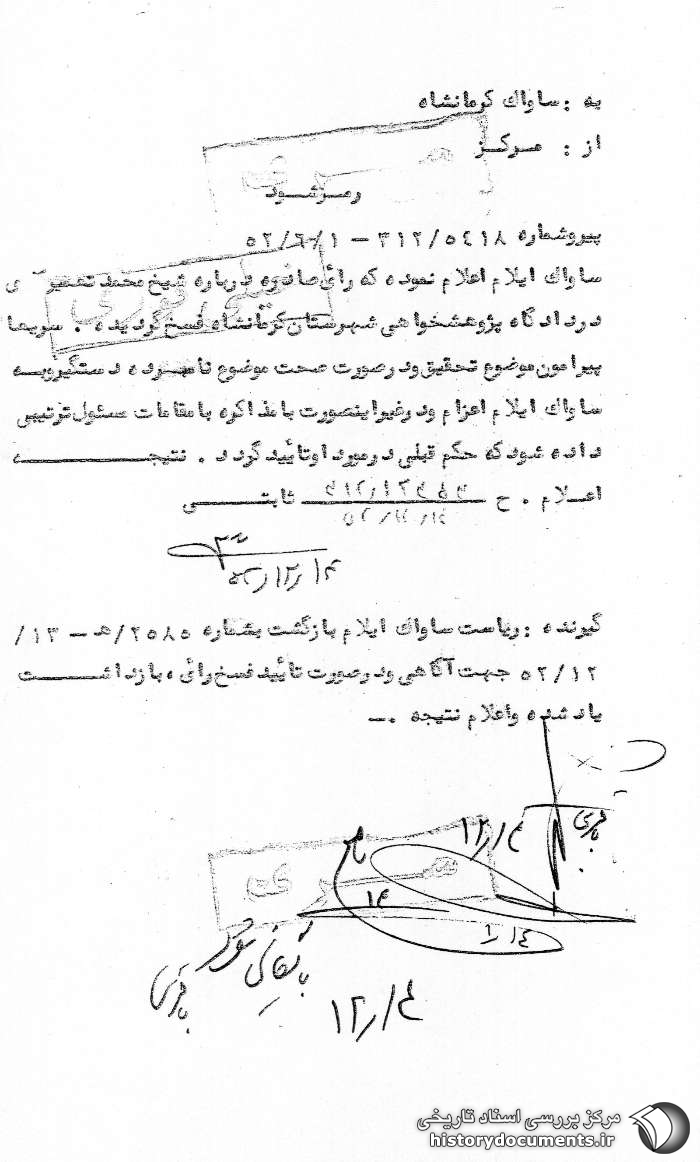 به : ساواك كرمانشاه
از : مركز
رمزشود
پیروشماره ۳۱۲/۵۴۱۸ – ۵۲/۶/۱
ساواك ایلام اعلام نموده كه رأی صادره درباره شیخ محمد
در دادگاه پژوهشخواهی شهرستان كرمانشاه فسخ گردیده . سریعا
پیرامون موضوع تحقیق ودرصورت صحت موضوع نامبرده دستگیر وبه
ساواك ایلام اعزام ودرغیراینصورت بامذاكره بامقامات مسئول ترتیبی
داده شود كه حكم قبلی درمورد اوتأیید گردد . نتیجه
اعلام . ح ثابتی
گیرنده : ریاست ساواك ایلام بازگشت بشماره ۲۵۸۵/هـ – ۱۳/
۵۲/۱۲ جهت آگاهی ودرصورت تأیید فسخ رأی ، بازداشت
یاد شده واعلام نتیجه .–
باقری
۱۲/۱۴
بایگانی شود
باقری
۱۲/۱۴
مرکز بررسی اسناد تاریخی
historydocuments.ir